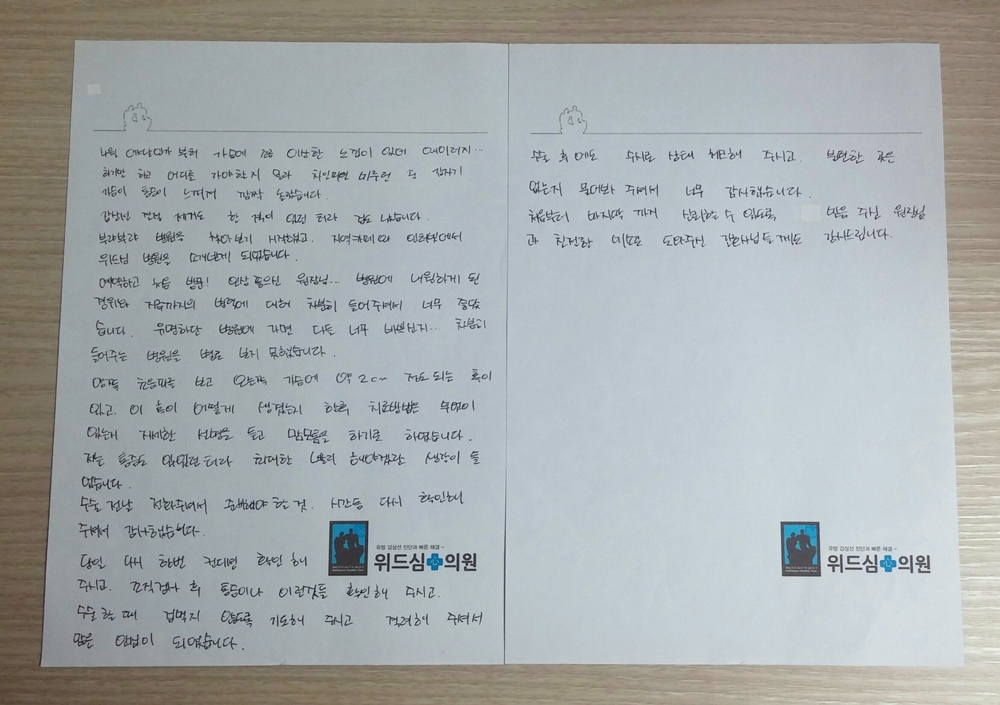 가슴에 이상한 느낌이 있데
하기만 하고 어디를 가야할지 몰라 갑자기
가슴이 통증이 느껴져 깜짝 놀랐습니다.
갑상선 제거도 한 적이 있던 터라 겁도 났습니다.
부랴부랴 병원을 찾아보기 시작하고. 지역카페와 인터넷에서
위드심 병원을 보게 되었습니다.
예약하고 처음 방문! 인상 좋으신 원장님... 병원에 내원하게 된
경위와 지금까지의 병력에 대해 차분히 들어주셔서 너무 좋았
습니다. 유명하단 병원에 가면 다들 너무 바쁘신지... 차분히
들어주는 병원을 별로 보지 못했습니다.
초음파를 보고 오른쪽 가슴에 약 2cm 정도 되는 혹이
있고. 이 혹이 어떻게 생겼는지 향후 치료방법은 무엇이
있는지 자세한 설명을 듣고 맘모톰을 하기로 하였습니다.
저는 통증도 있었던 터라 최대한 빨리 해야겠단 생각이 들
었습니다.
수술 전날 전화주셔서 준비해야 할 것. 시간등 다시 확인해
주셔서 감사했습니다.
당일. 다시 한번 컨디션 확인 해
주시고. 조직검사 후 통증이나 이런것들 확인해 주시고.
수술 할 때 겁먹지 않도록 기도해 주시고 격려해 주셔서
많은 안심이 되었습니다.
유방 갑상선 진단과 빠른 해결~
위드심의원
수술 후에도 수시로 상태 체크해 주시고. 불편한 곳은
없는지 물어봐 주셔서 너무 감사했습니다.
처음부터 마지막 까지 신뢰할 수 있도록 믿음 주신 원장님
과 친절한 미소로 도와주신 간호사님들께도 감사드립니다.
유방 갑상선 진단과 빠른 해결~
위드심의원